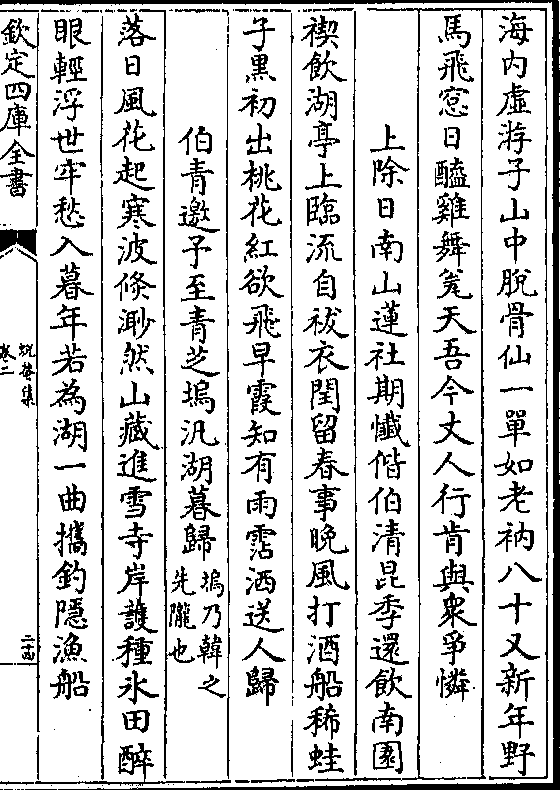 海内虚游子山中脫骨仙一單如老衲八十又新年野
馬飛窓日醯雞舞瓮天吾今丈人行肯與衆爭憐
上除日南山蓮社期懺偕伯清昆季還飲南園
禊飲湖亭上臨流自祓衣閏留春事晚風打酒船稀蛙
子黑初出桃花紅欲飛早霞知有雨霑洒送人歸
伯青邀予至青芝塢汎湖暮歸塢乃韓之
先隴也
落日風花起寒波倐渺然山藏進雪寺岸護種氷田醉
眼輕浮世牢愁入暮年若為湖一曲攜釣隱漁船
欽定四庫全書
卷二
二十四